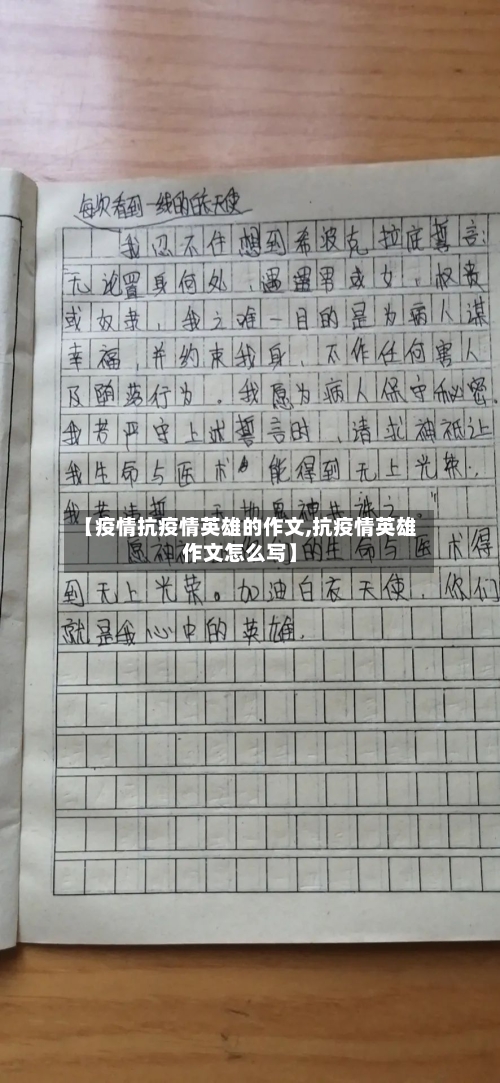 每次看到一线的白衣天使
我忍不住想到希波克拉底誓言:
无论置身何处,遇男或女,权贵
或奴隶,我之唯一目的是为病人谋
幸福,并约束我身,不作任何害人
及堕落行为。我愿为病人保守秘密.
我若严守上述誓言时,请求神祇让
我生命与医术能得到无上光荣..
我若违誓
【疫情抗疫情英雄的作文,抗疫情英雄
作文怎么写】
愿神 的生命与医术得
到无上光荣。加油白衣天使,你们
就是我心中的英雄.